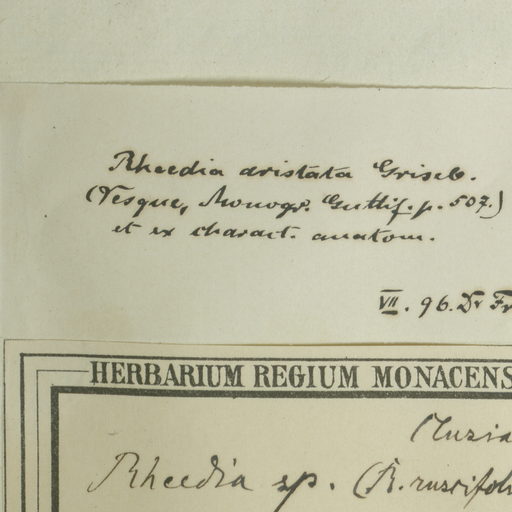 Rheedia aristata Griseb.
(Vesque, Monogr. Guttif. p. 507.)
et ex charact. anatom.
VII. 96. Dr Fr
HERBARIUM REGIUM MONACENS
Clusia
Rheedia sp. (R. ruscifoli